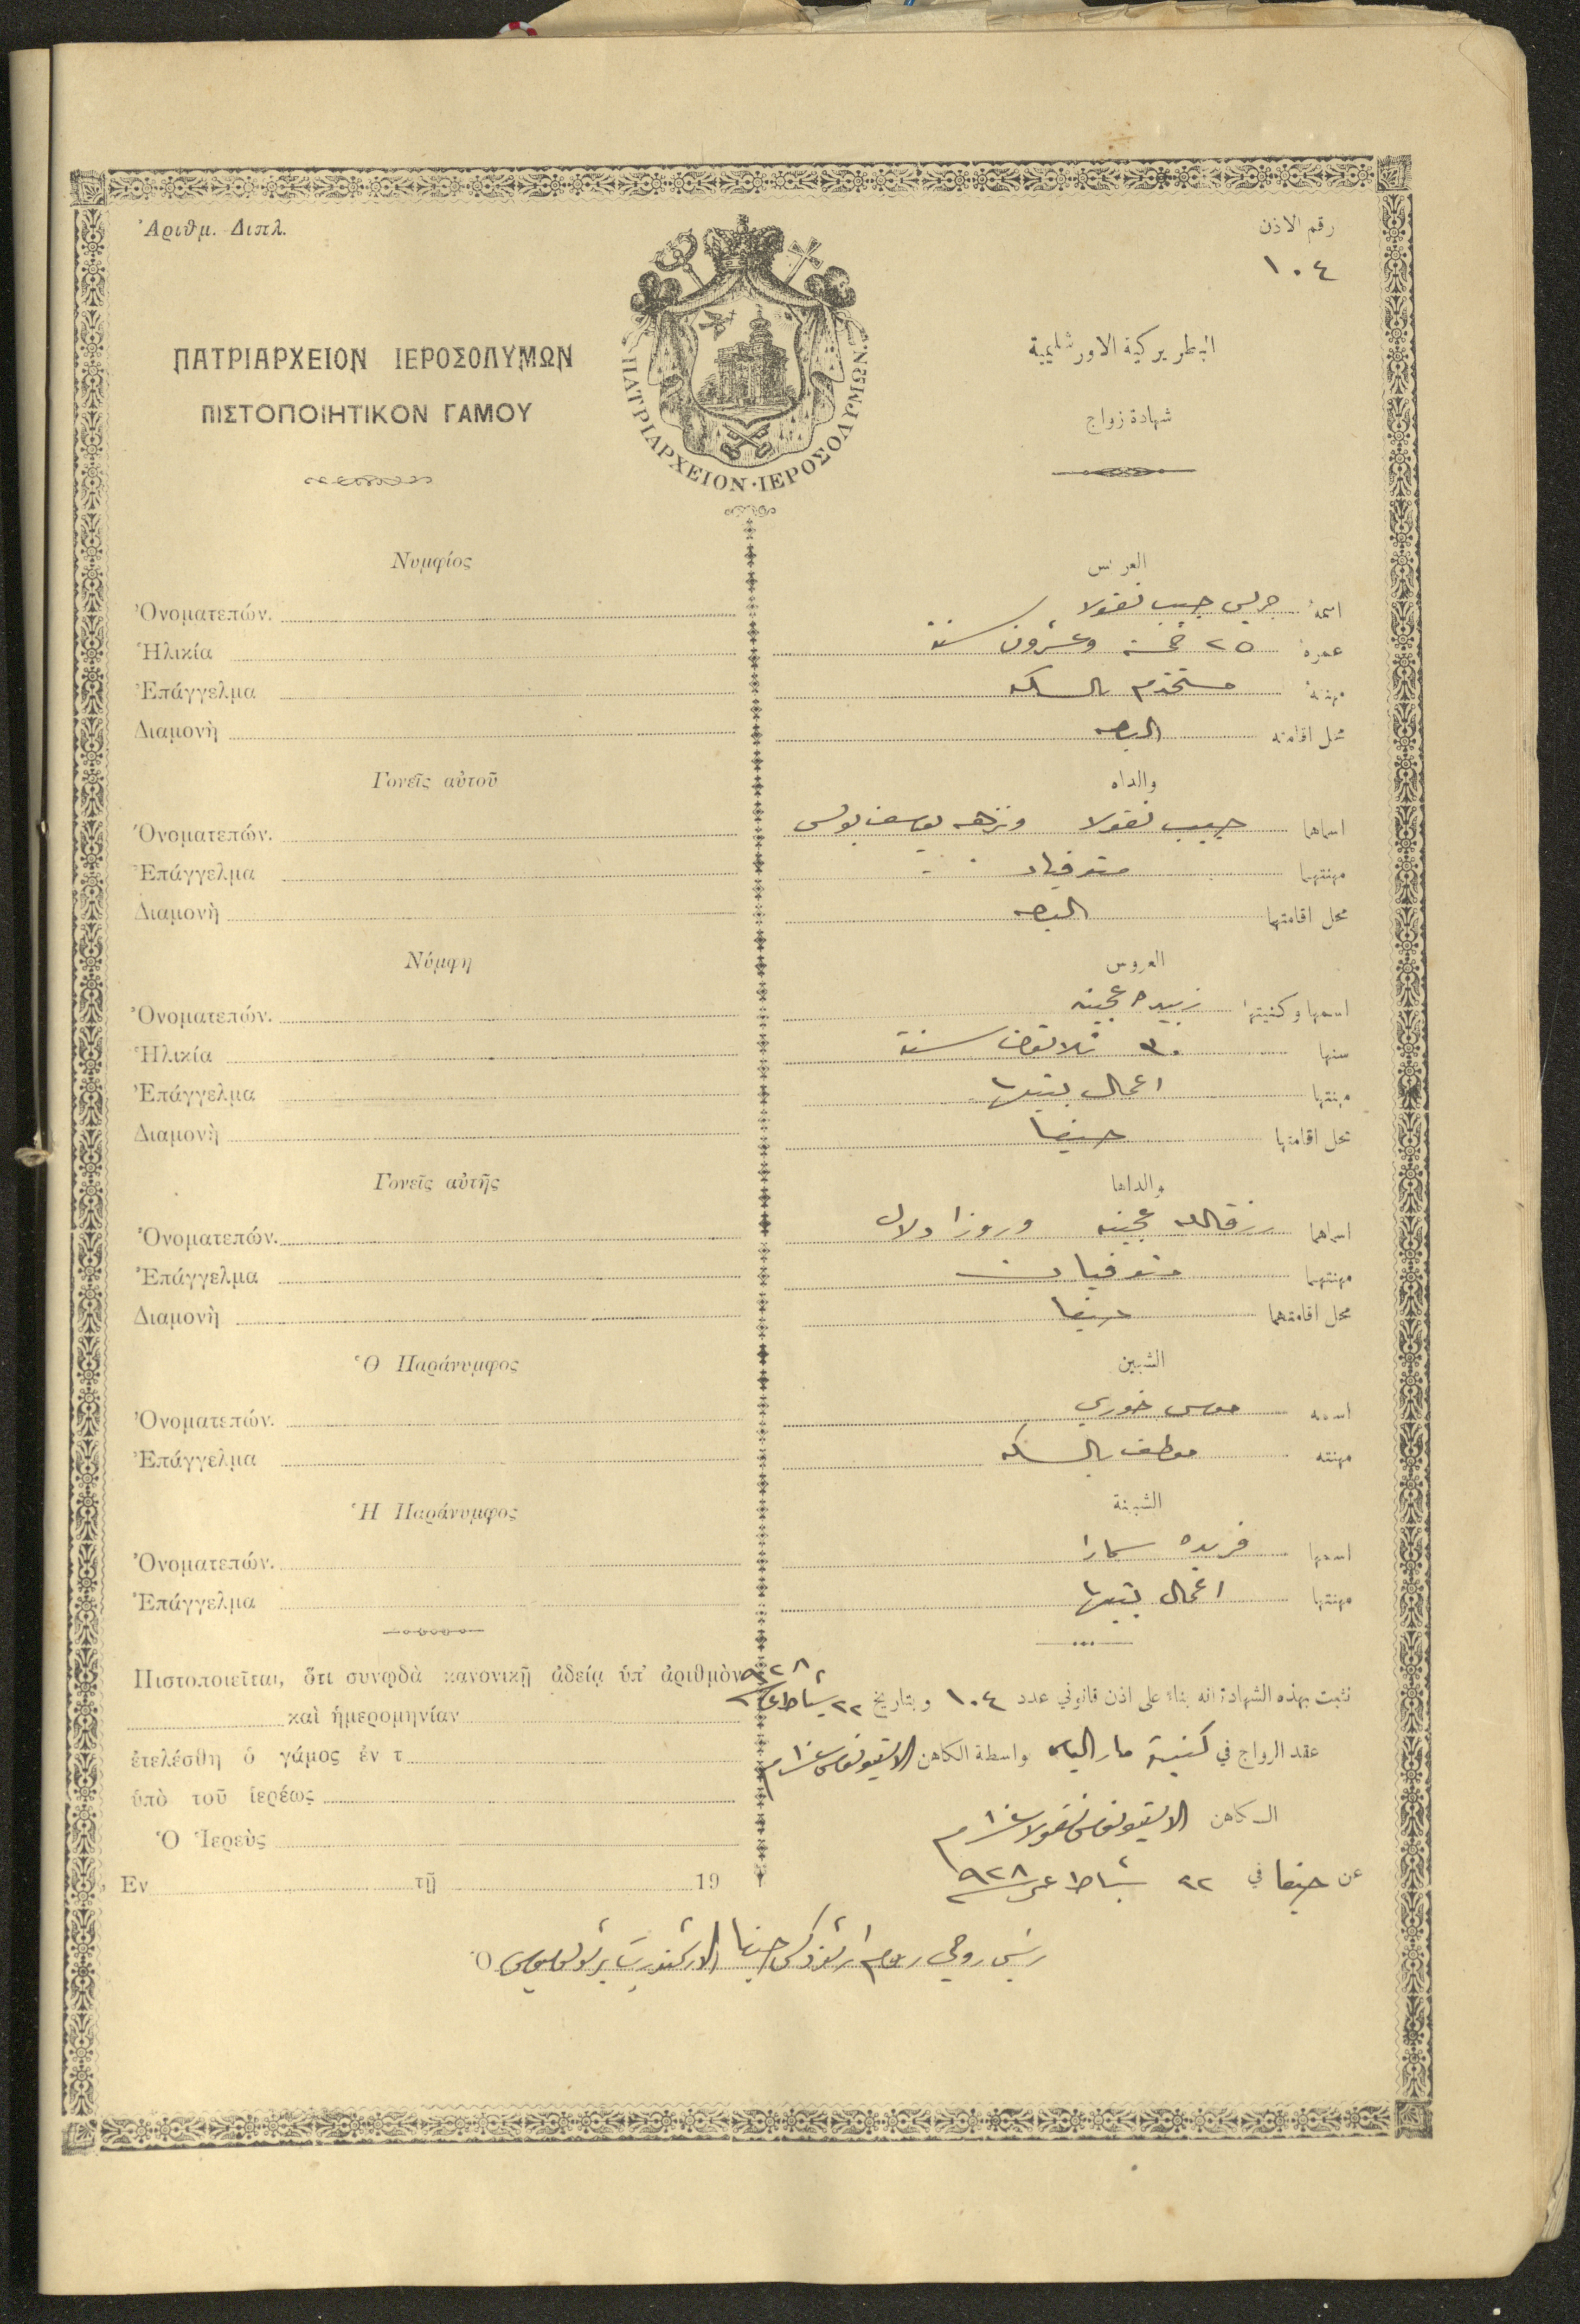 Ἀριθμ. Διπλ.
رقم الاذن
١٠٤
ΠΑΤΡΙΑΡΧΕΙΟΝ ΙΕΡΟΣΟΛΥΜΩΝ
ΠΙΣΤΟΠΟΙΗΤΙΚΟΝ ΓΑΜΟΥ
ΠΑΤΡΙΑΡΧΕΙΟΝ·ΙΕΡΟΣΟΛΥΜΩΝ.
البطريركية الاورشليمية
شهادة زواج
Νυμφίος
Ὀνοματεπών.
Ἡλικία
Ἐπάγγελμα
Διαμονὴ
Γονεῖς αὐτοῦ
Ὀνοματεπών.
Ἐπάγγελμα
Διαμονὴ
Νύμφη
Ὀνοματεπών.
Ἡλικία
Ἐπάγγελμα
Διαμονὴ
Γονεῖς αὐτῆς
Ὀνοματεπών.
Ἐπάγγελμα
Διαμονὴ
Ὁ Παράνυμφος
Ὀνοματεπών.
Ἐπάγγελμα
Ἡ Παράνυμφος
Ὀνοματεπών.
Ἐπάγγελμα
Πιστοποιεῖται, ὅτι συνῳδὰ κανονικῇ ἀδείᾳ ὑπ' ἀριθμὸν
καὶ ἡμερομηνίαν
ἐτελέσθη ὁ γάμος ἐν τ
ὑπὸ τοῦ ἱερέως
Ὁ Ἱερεὺς
Ἐν τῇ 19
العريس
اسمه جريس حبيب نقولا
عمره ٢٥ خمسة وعشرون سنة
مهنته مستخدم بالسكه
محل اقامته البصه
والداه
اسماهما حبيب نقولا ونزهه يوسف بولس
مهنتهما متوفيان
محل اقامتهما البصه
العروس
اسمها وكنيتها زبيده عجينه
سنها ٣٠ ثلاثون سنة
مهنتها اعمال بيتها
محل اقامتها حيفا
والداها
اسماهما رزقالله عجينه وروزا دلال
مهنتهما متوفيان
محل اقامتهما حيفا
الشبين
اسمه موسى خوري
مهنته موظف بالسكه
الشبينة
اسمها فريده سمارا
مهنتها اعمال بيتها
نثبت بهذه الشهادة انه بناء على اذن قانوني عدد ١٠٤ وبتاريخ ٢٢ شباط ٩٢٨
عقد الزواج في كنيسة مار الياس واسطة الكاهن
الكاهن نقولا
عن حيفا في ٢٢ شباط ٩٢٨
Ὁ رئيس روحي روم ارثوذكس حيفا